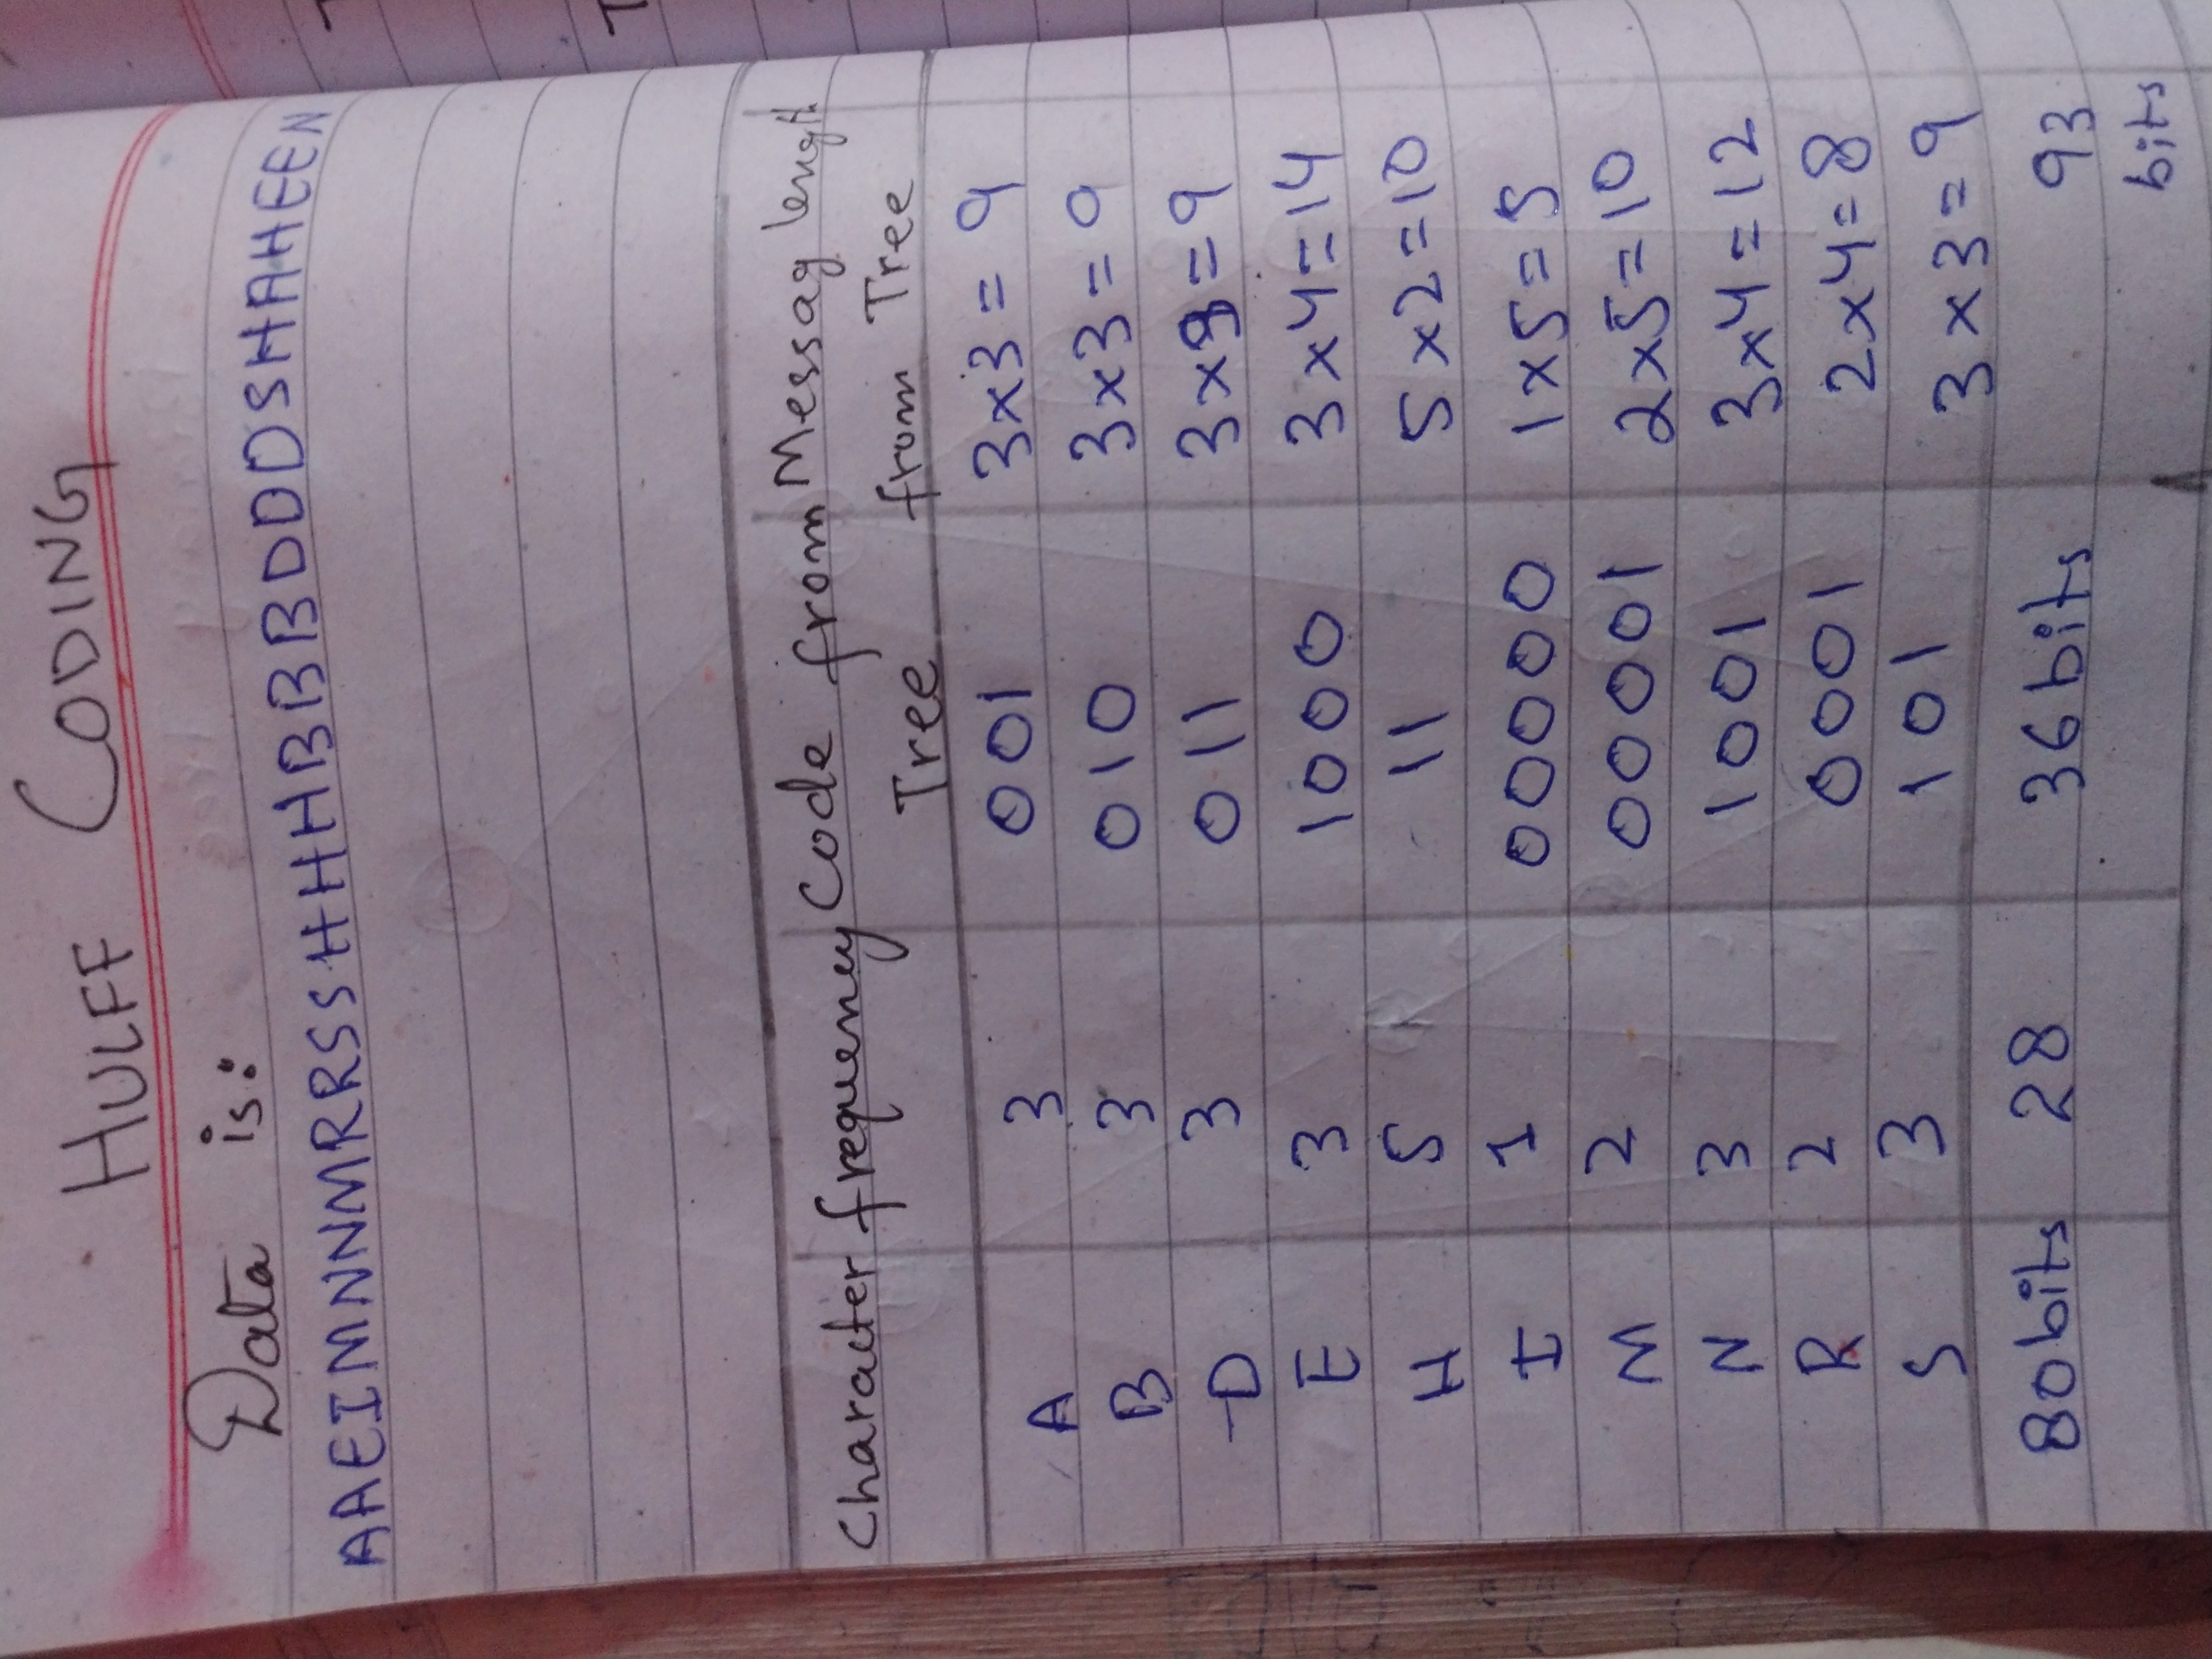 HULFF CODING
Data is:
AAEIMNNMRRSSHHHBBBDDDSHAHEEN
Character frequency Code from Messag length
Tree from Tree
A 3 001 3x3 = 9
B 3 010 3x3 = 9
D 3 011 3x3 = 9
E 3 1000 3x4=14
H 5 11 5x2=10
I 1 00000 1x5=5
M 2 00001 2x5=10
N 3 1001 3x4=12
R 2 0001 2x4=8
S 3 101 3x3=9
80bits 28 36bits 93
bits